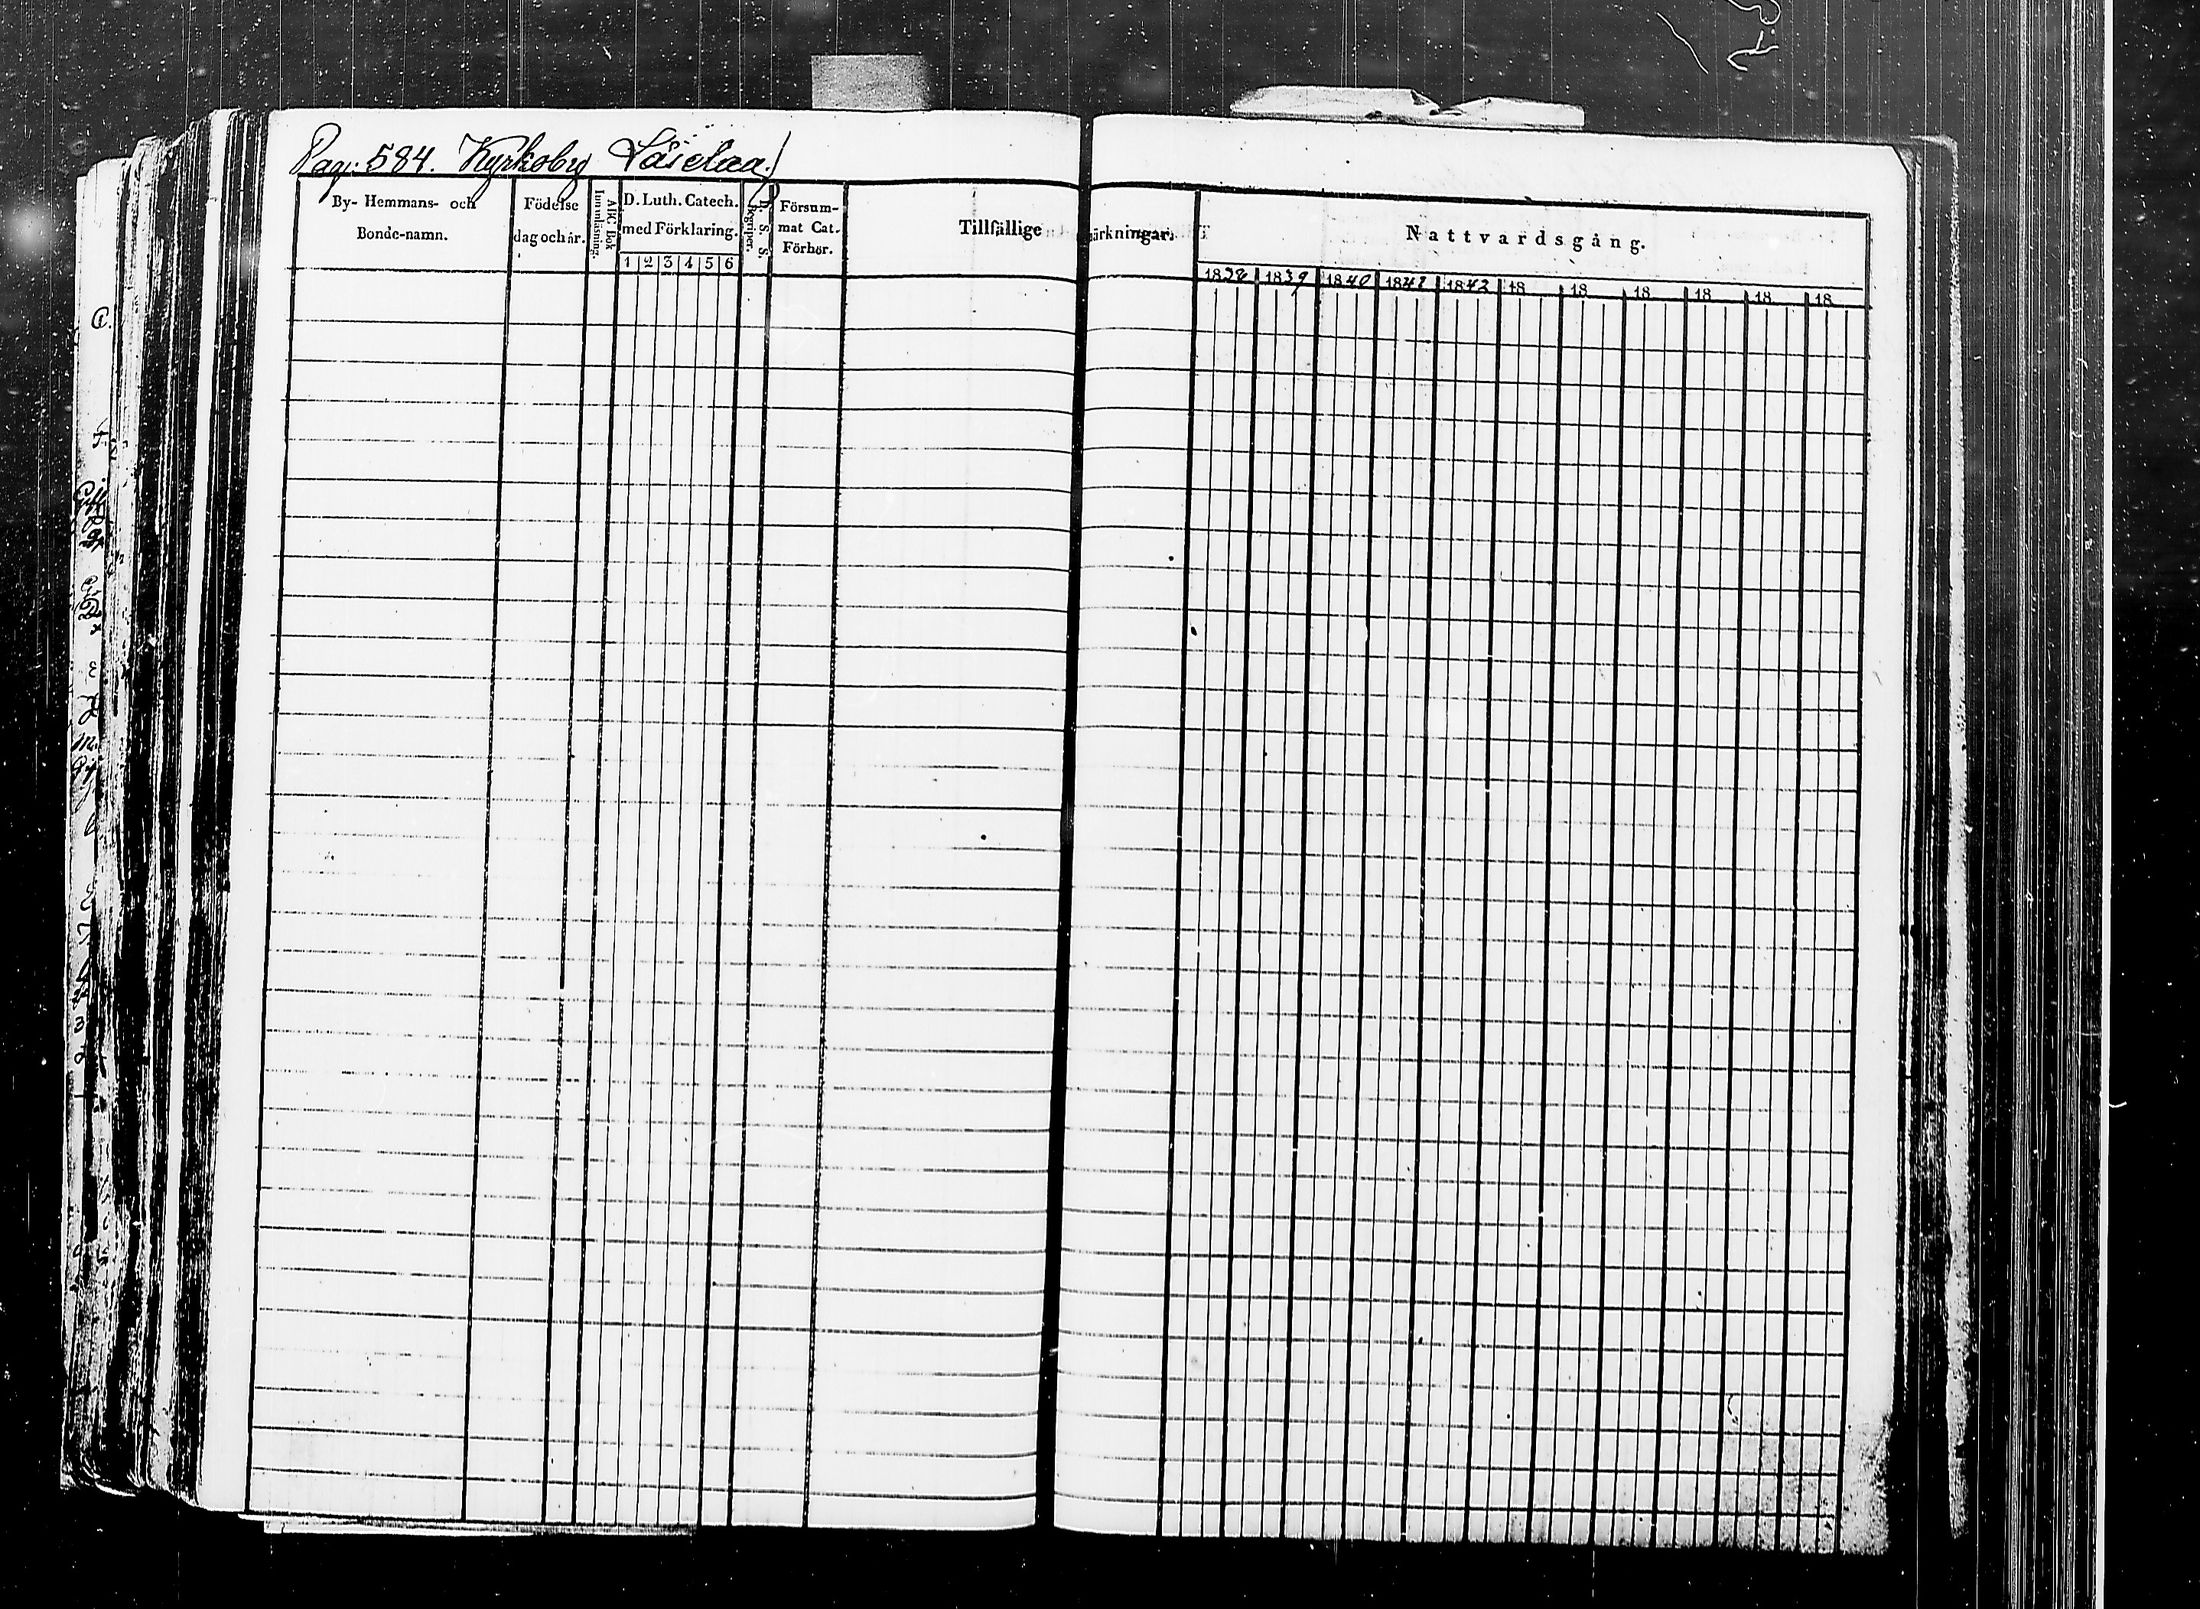 Pag: 584. Kyrkoby
By- Hemmans- och Bonde-namn.
Födelse dag och år.
ABC Bok Innanläsning.
D. Luth. Catech. med Förklaring.
1 2 3 4 5 6
D. S. S. Begriper.
Försum- mat Cat. Förhör.
Tillfällige märkningar.
Nattvardsgång.
1838 1839 1840 1841 1842 18 18 18 18 18 18